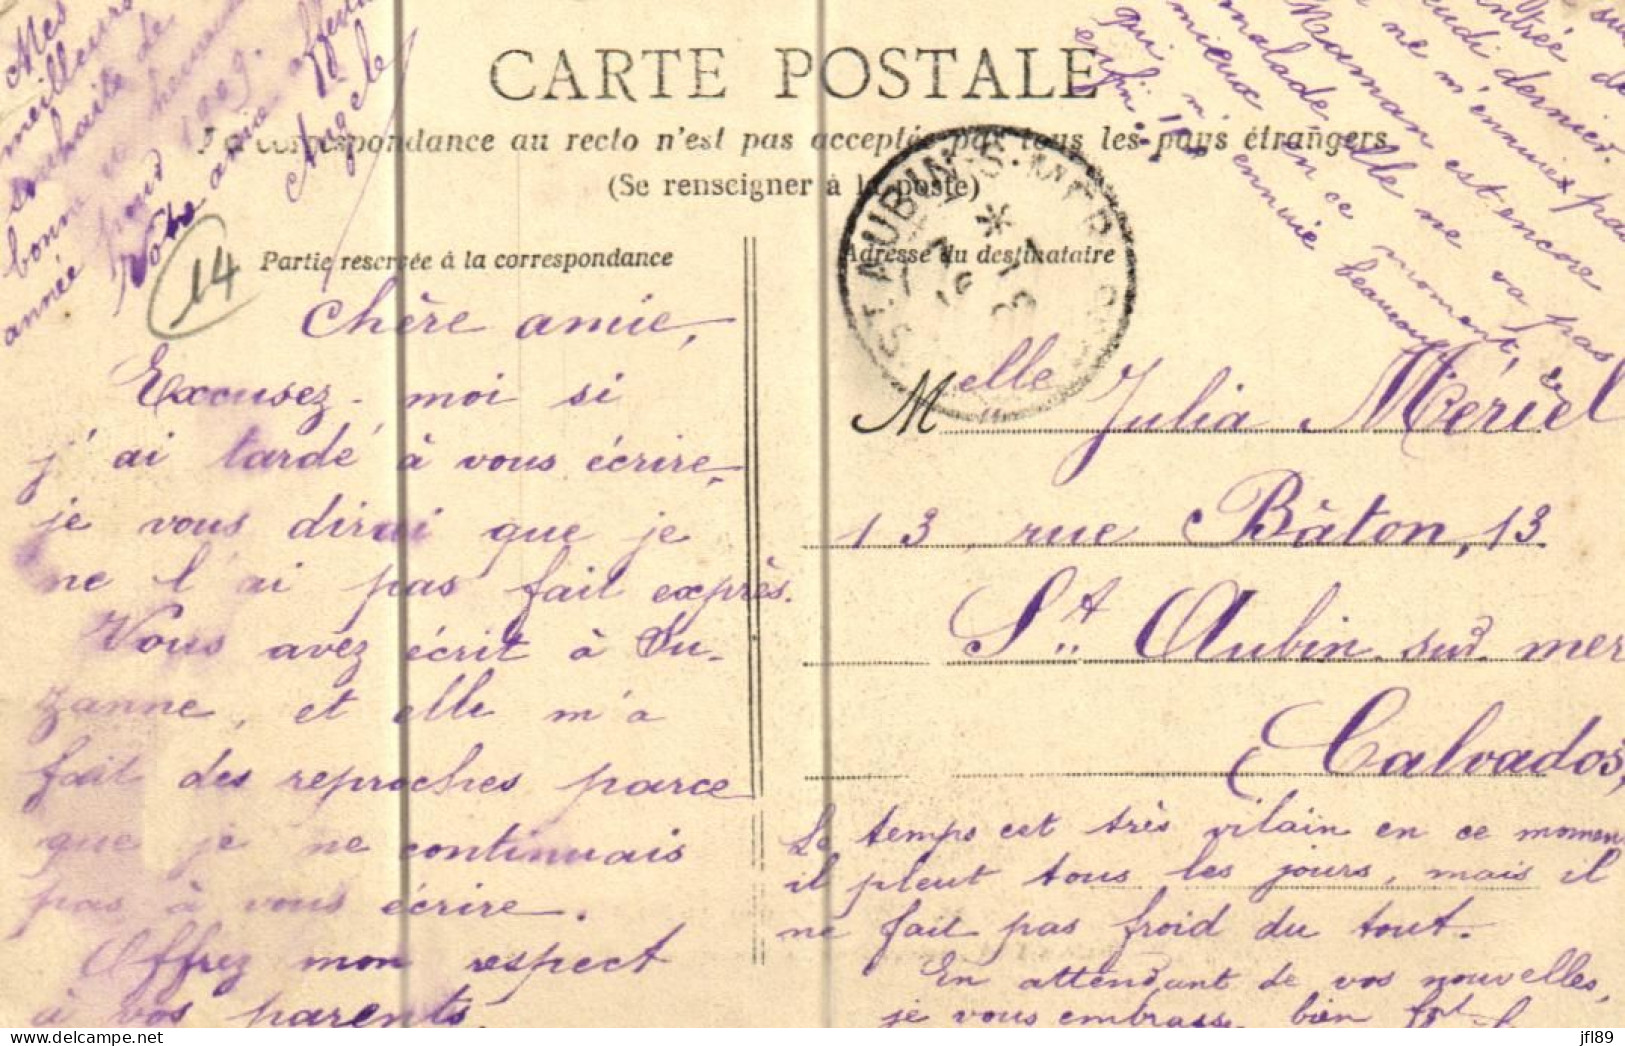 CARTE POSTALE
La correspondance au recto n'est pas acceptée par tous les pays étrangers
(Se renseigner à la poste)
Partie reservée à la correspondance
Adresse du destinataire
14
ST AUBIN-S-MER
Chère amie,
Excusez-moi si
j'ai tardé à vous écrire,
je vous dirai que je
ne l'ai pas fait exprès.
Vous avez écrit à Su-
zanne, et elle m'a
fait des reproches parce
que je ne continuais
pas à vous écrire.
Offrez mon respect
à vos parents.
Mes
meilleurs
souhaits de
bonne
année
1909.
Votre amie
Angele
Melle Julia Mériel
13, rue Bâton, 13
St Aubin sur mer
Calvados,
Le temps est très vilain en ce momen
il pleut tous les jours, mais il
ne fait pas froid du tout.
En attendant de vos nouvelles,
je vous embrasse bien
jeudi dernier.
ne m'ennuie pas
Maman est encore
malade elle ne va pas
mieux en ce moment
qui m'ennuie beaucoup
enfin!!
jfl89